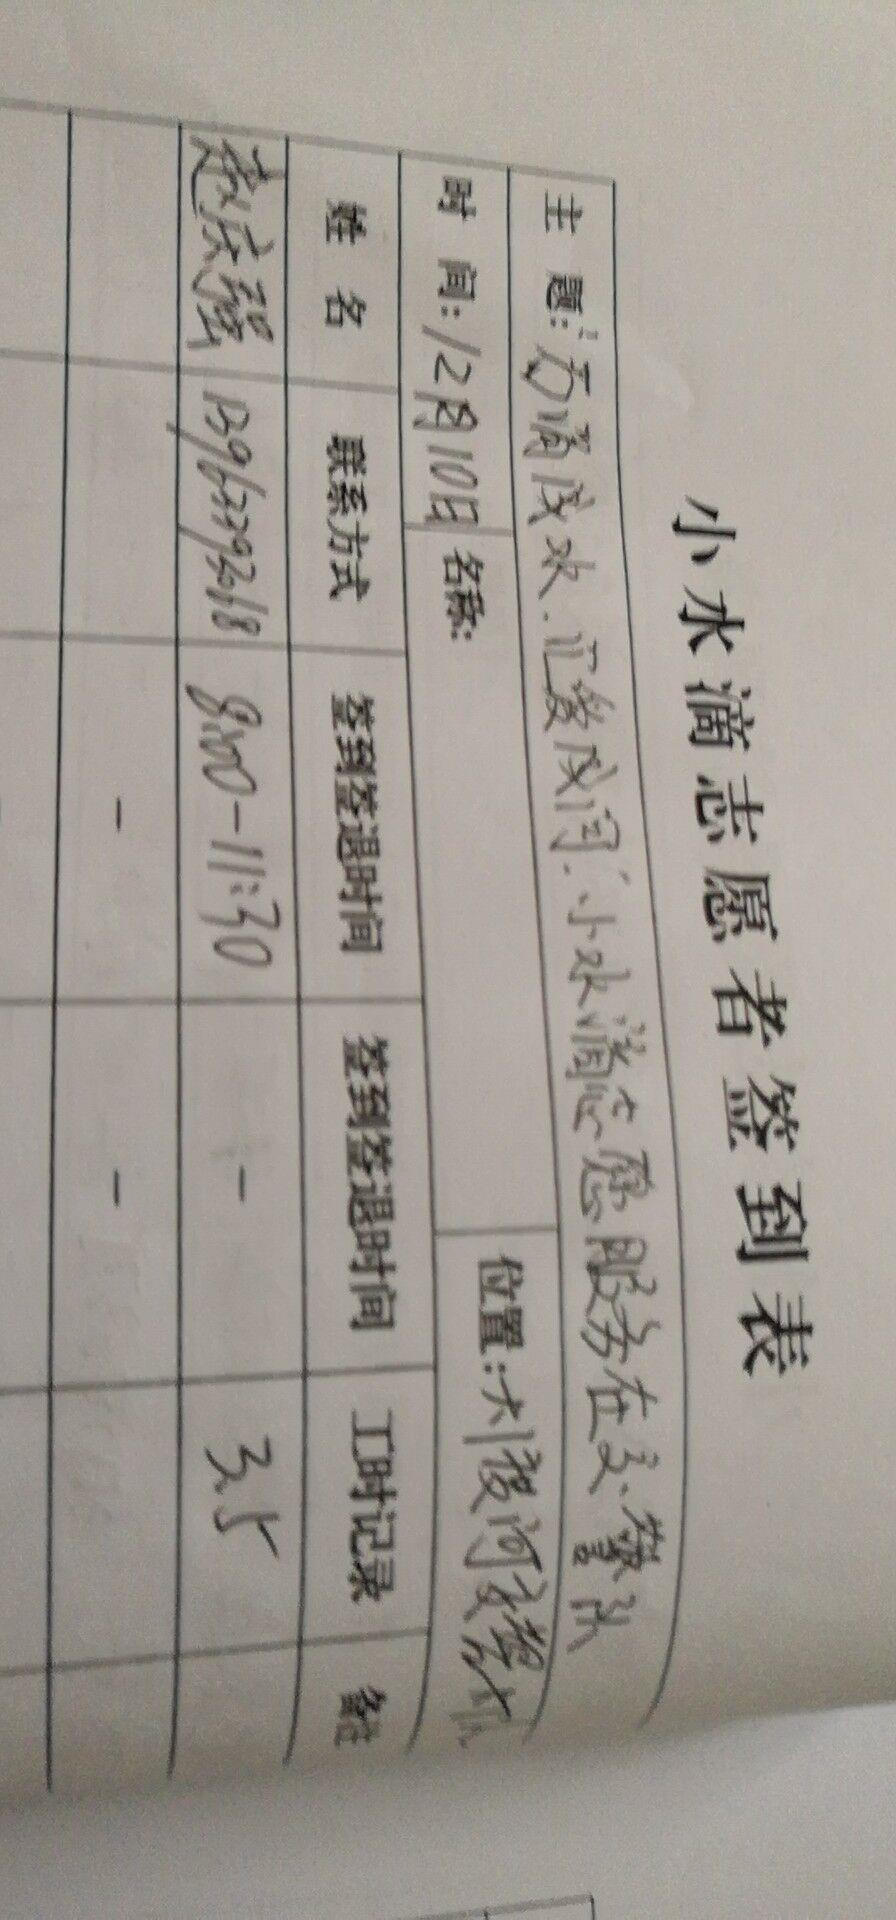 小水滴志愿者签到表
主 题:"万滴成水.汇聚成河"小水滴志愿服务在交警队
时 间:12月10日 名称: 位置:大
姓 名 联系方式 签到签退时间 签到签退时间 工时记录 备注
强 8:00-11:30 - 3.5
- -